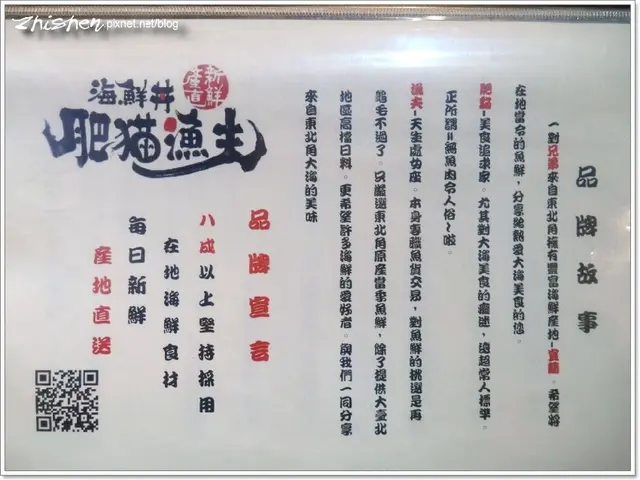 zhishen.pixnet.net/blog
品牌故事
一對兄弟來自東北角擁有豐富海鮮產地-宜蘭。希望將
在地當令的魚鮮，分享給熱愛大海美食的您。
肥貓-美食追求家。尤其對大海美食的癡迷，遠超常人標準。
正所謂=絕魚肉令人俗~啦。
漁夫-天生處女座。本身專職魚貨交易，對魚鮮的挑選是再
龜毛不過了。只嚴選東北角原產當季魚鮮，除了提供大臺北
地區高檔日料。更希望許多海鮮的愛好者。與我們一同分享
來自東北角大海的美味
新鮮
產直
海鮮丼
肥猫漁夫
品牌宣言
八成以上堅持採用
在地海鮮食材
每日新鮮
產地直送